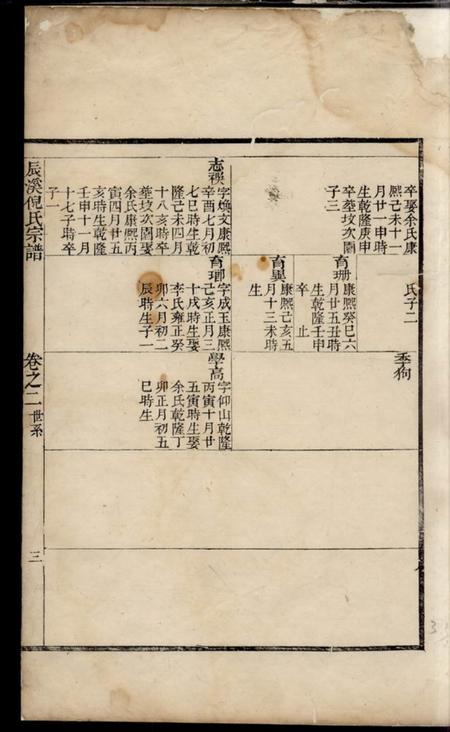 卒娶余氏康
熙己未十一
月廿一申時
生乾隆庚申
卒葬坟次園
子三
志禩
字煥文康熙
辛酉七月初
七巳時生乾
隆己未四月
十八亥時卒
葬坟次園娶
余氏康熙丙
寅四月廿五
亥時生乾隆
壬申十一月
十七子時卒
子一
氏子二
育珊
康熙癸巳六
月廿五丑時
生乾隆壬申
卒 止
育異
康熙己亥五
月十三未時
生
育瑯
字成玉康熙
己亥正月三
十戌時生娶
李氏雍正癸
卯六月初二
辰時生子一
季狗
學高
字仰山乾隆
丙寅十月廿
五寅時生娶
余氏乾隆丁
卯正月初五
巳時生
辰溪倪氏宗譜
卷之二 世系
三